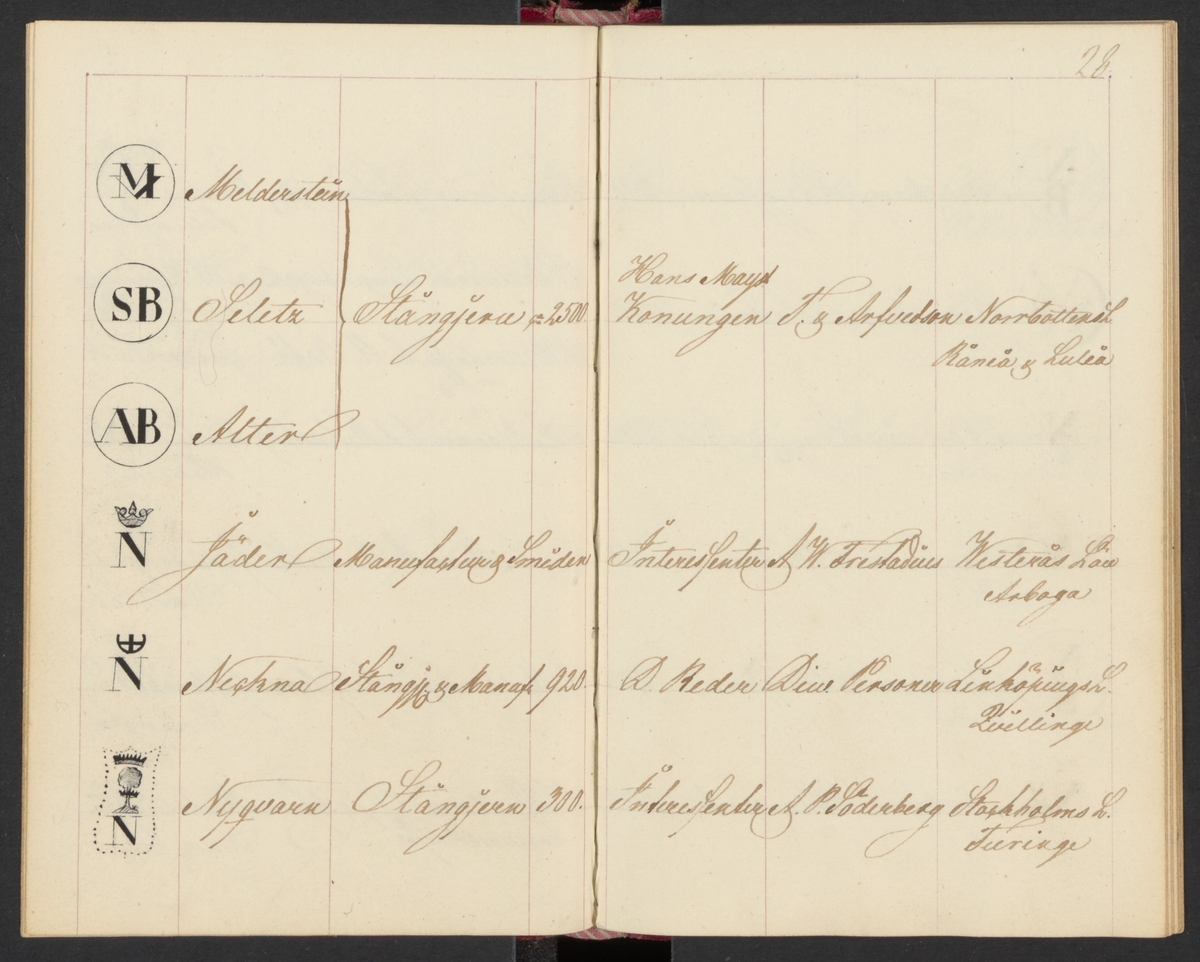 28.
M
Melderstein
Hans Mayst
SB Seletz Stångjern = 2500 Konungen T. & Arfvedson Norrbottens L.
Råneå & Luleå
AB Alter
N Jäder Manufactur & Smiden Interessenter A W. Frestadius Westerås Län
Arboga
N Neckna Stångj. & Manuf. 920. D. Reder Div. Personer Linköpings L.
Qvillinge
N Nyqvarn Stångjern 300. Interessenter A. P. Söderberg Stockholms L.
Tueringe